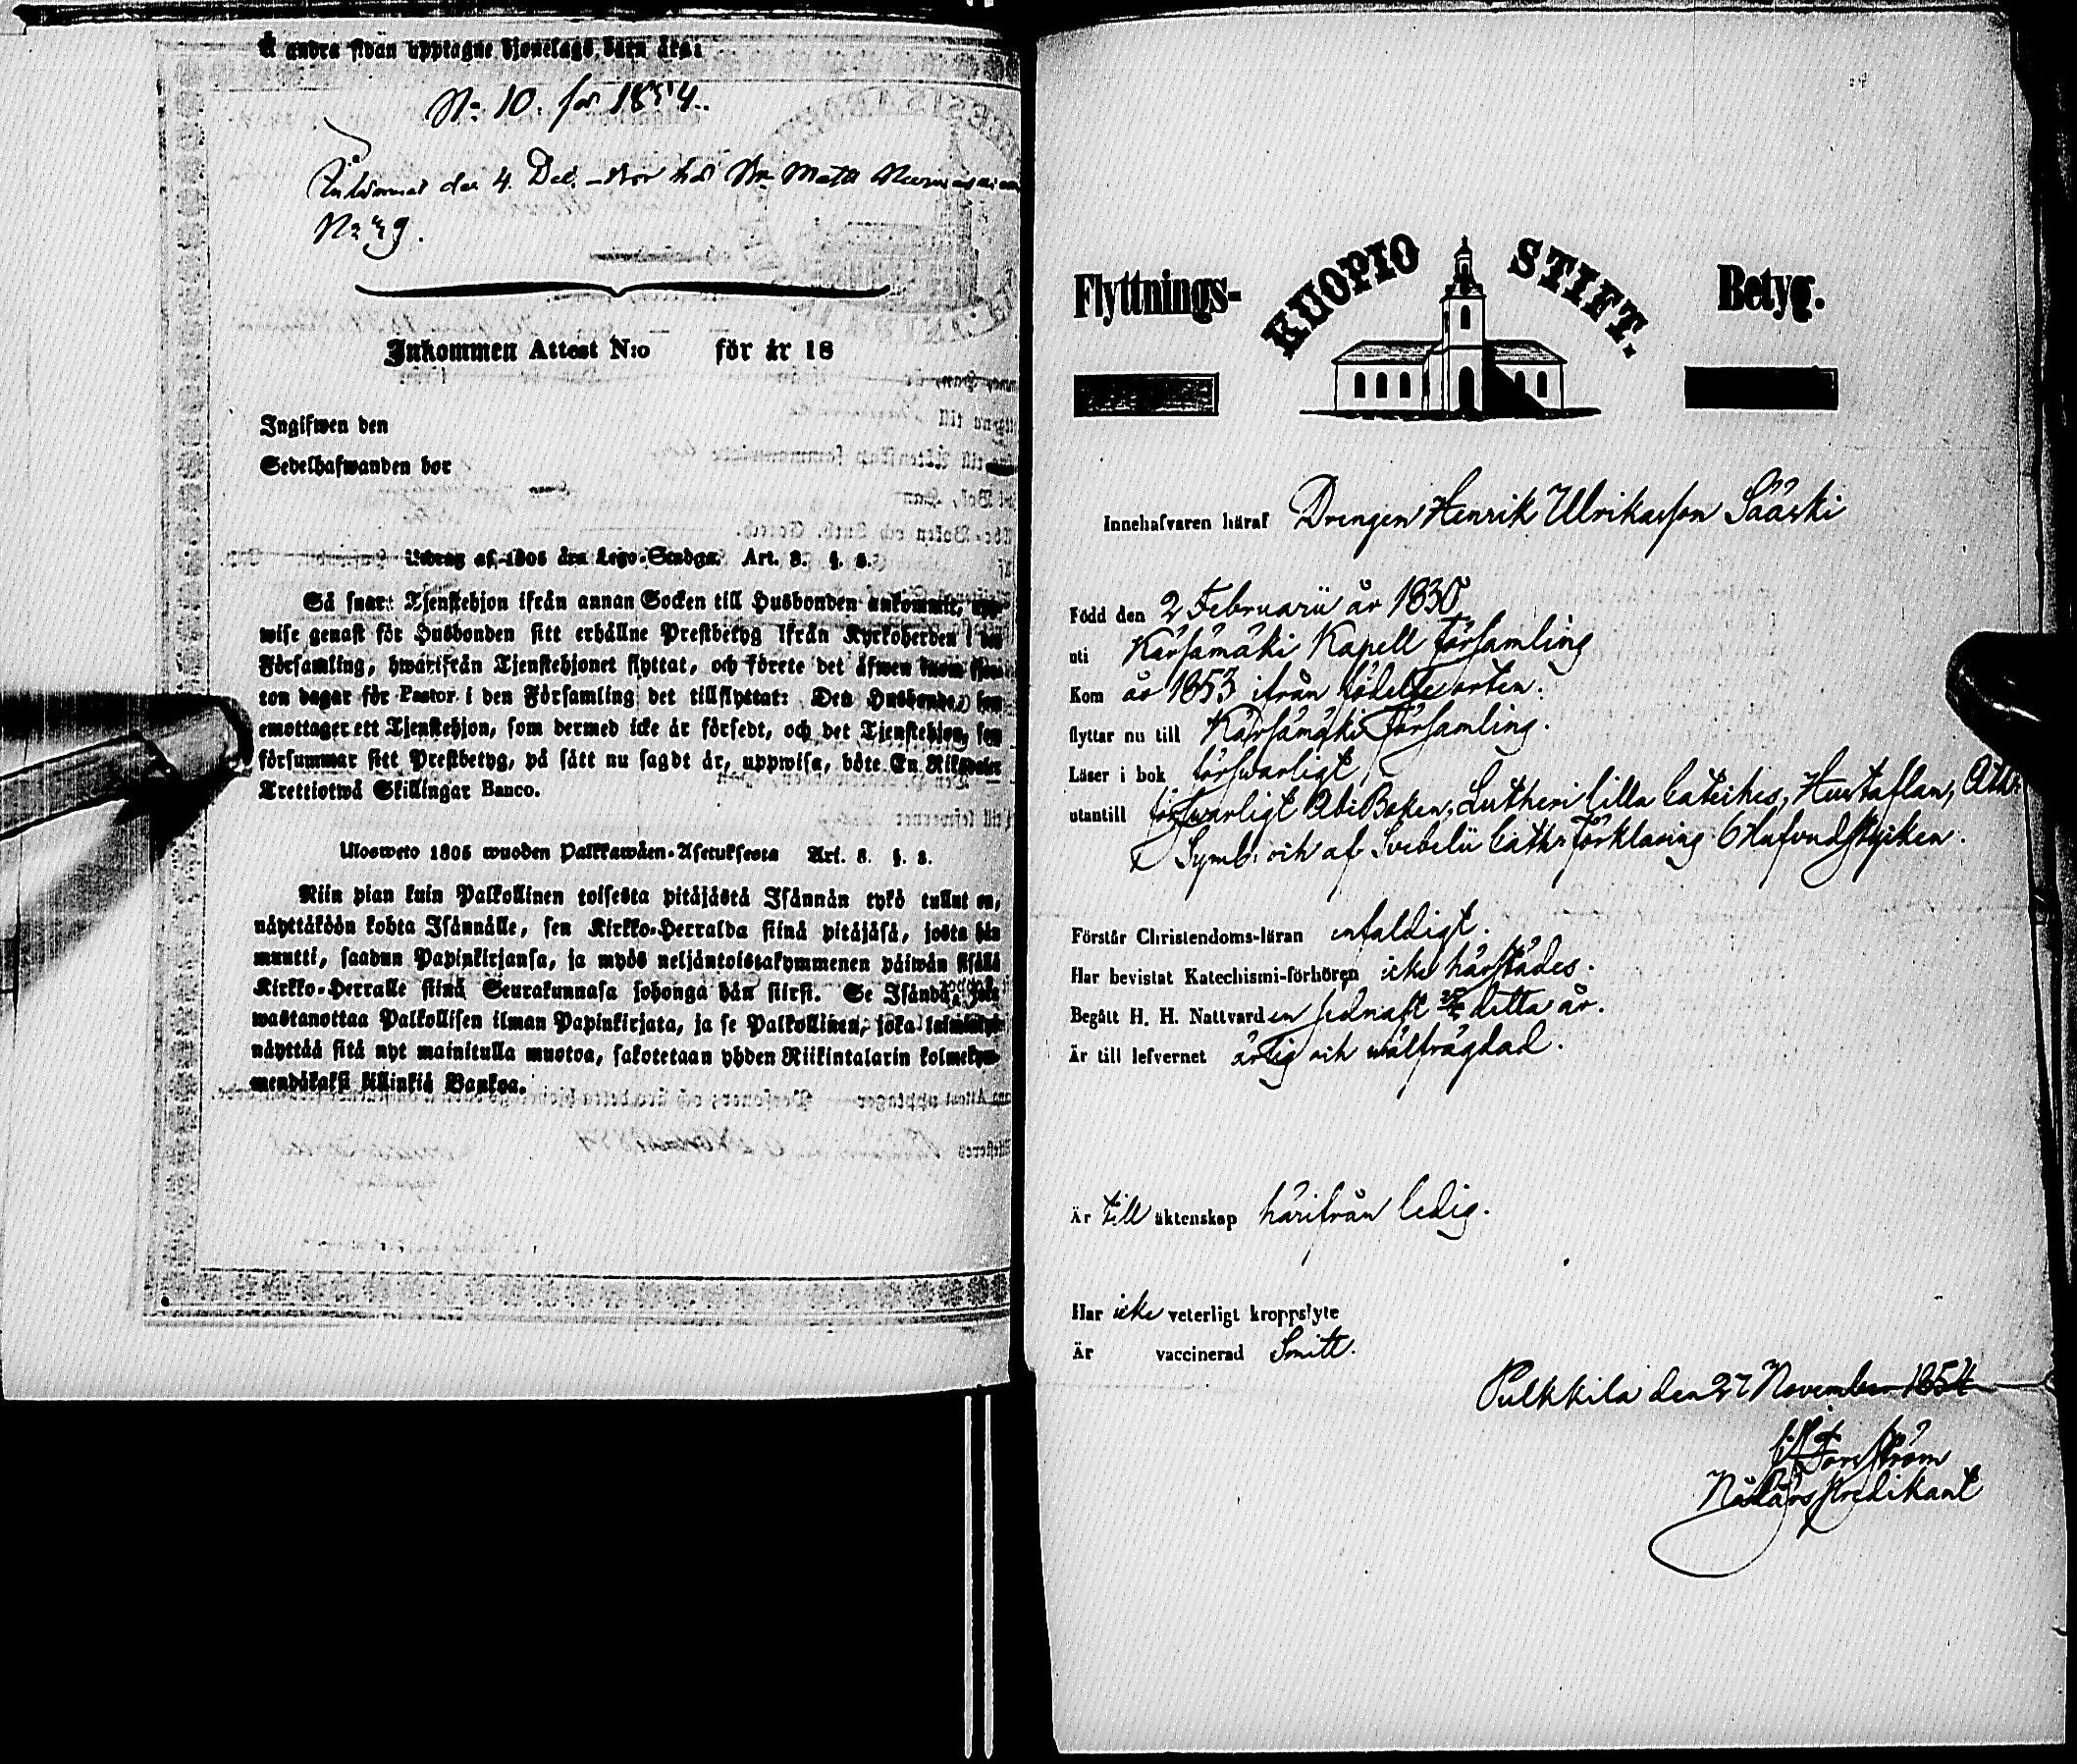 Å andra sidan upptagne hjonelags barn äro:
No 10. för 1854.
Inkommet den 4. Dec. bor hos
No 29.
Inkommen Attest N:o för år 18
Ingifwen den
Sedelhafwanden bor
Utdrag af 1805 års Lego-Stadga. Art. 8. §. 8.
Så snart Tjenstehjon ifrån annan Socken till Husbonden ankommit, upp-
wise genast för Husbonden sitt erhållne Prestbetyg ifrån Kyrkoherden i den
Församling, hwarifrån Tjenstehjonet flyttat, och förete det äfwen inom fjor-
ton dagar för Pastor i den Församling det tillflyttat: Den Husbonde, som
emottager ett Tjenstehjon, som dermed icke är försedt, och det Tjenstehjon, som
försummar sitt Prestbetyg, på sätt nu sagdt är, uppwisa, böte En Riksdaler
Trettiotwå Skillingar Banco.
Ulosweto 1805 wuoden Palkkawäen-Asetuksesta Art. 8. §. 8.
Niin pian kuin Palkollinen toisesta pitäjästä Isännän tykö tullut on,
näyttäköön kohta Isännälle, sen Kirkko-Herralda siinä pitäjäsä, josta hän
muutti, saadun Papinkirjansa, ja myös neljäntoistakymmenen päiwän sisällä
Kirkko-Herralle siinä Seurakunnasa johonga hän siirsi. Se Isändä, joka
wastanottaa Palkollisen ilman Papinkirjata, ja se Palkollinen, joka
näyttää sitä nyt mainitulla muotoa, sakotetaan yhden Riikintalarin kolmekym-
mendäkaksi killinkiä Bankoa.
Flyttnings- KUOPIO STIFT. Betyg.
Innehafvaren häraf Drengen Henrik Ulriksson Sääski
Född den 2 Februarii år 1830
uti Kärsämäki Kapell Församling
Kom år 1853 ifrån födelse orten.
flyttar nu till Kärsämäki Församling.
Läser i bok försvarligt
utantill försvarligt Abc Boken, Lutheri lilla Cateches, Hustaflan, Ath:
Symb: och af Svebelii Cath: Förklaring 6 Hufvudstycken.
Förstår Christendoms-läran enfaldigt.
Har bevistat Katechismi-förhören icke härstädes.
Begått H. H. Nattvarden sednast detta år.
Är till lefvernet ärlig och wälfrägdad.
Är till äktenskap härifrån ledig.
Har icke veterligt kroppslyte
Är vaccinerad Smitt.
Pulkkila den 27 November 1854
Forsström
Nådårs Predikant